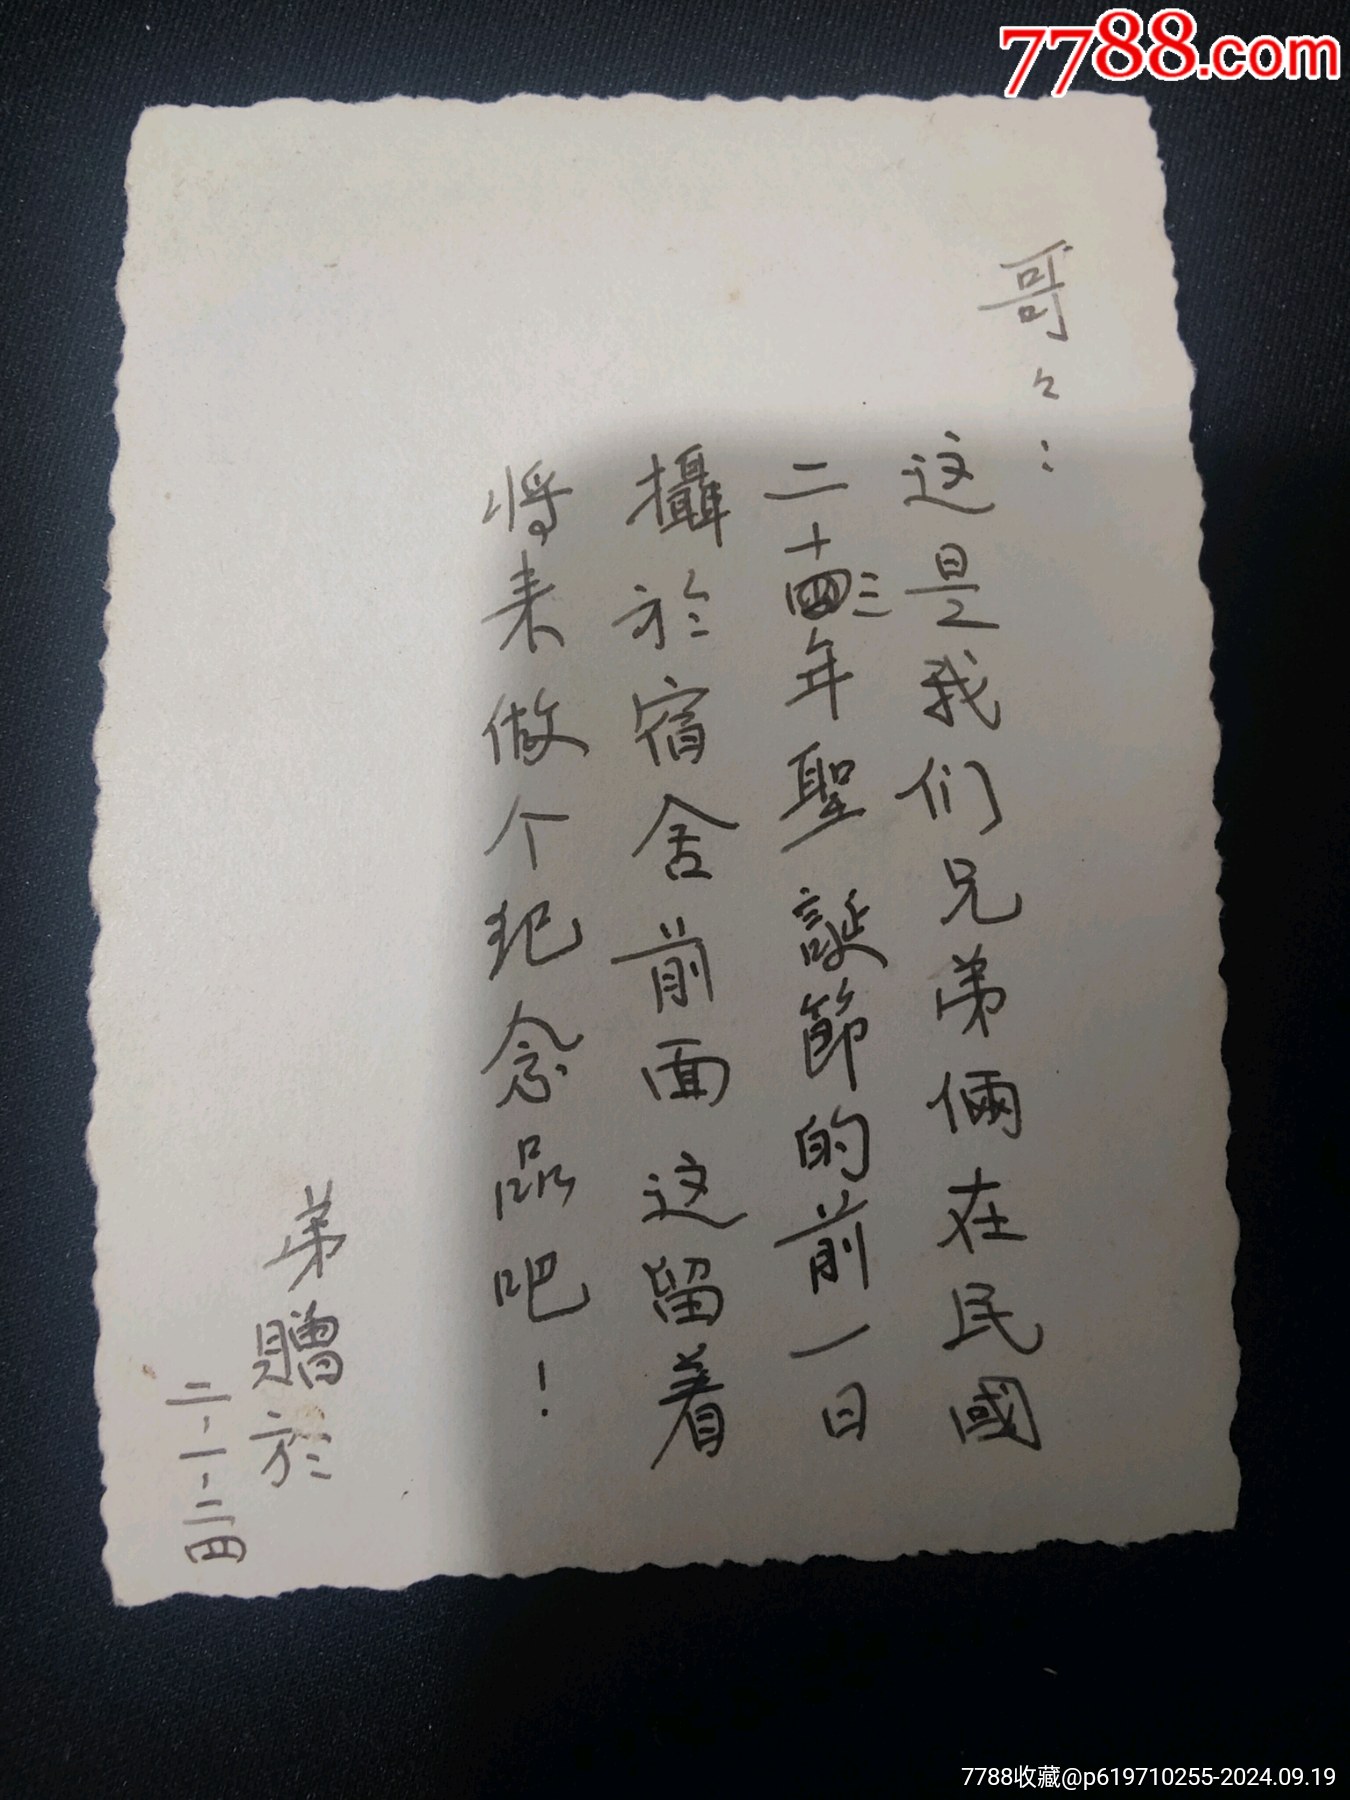 7788.com
哥々：
这是我们兄弟倆在民國
二十三年聖誕節的前一日
攝於宿舍前面这留着
将来做个纪念品吧！
弟贈於
二-一-二四
7788收藏@p619710255-2024.09.19